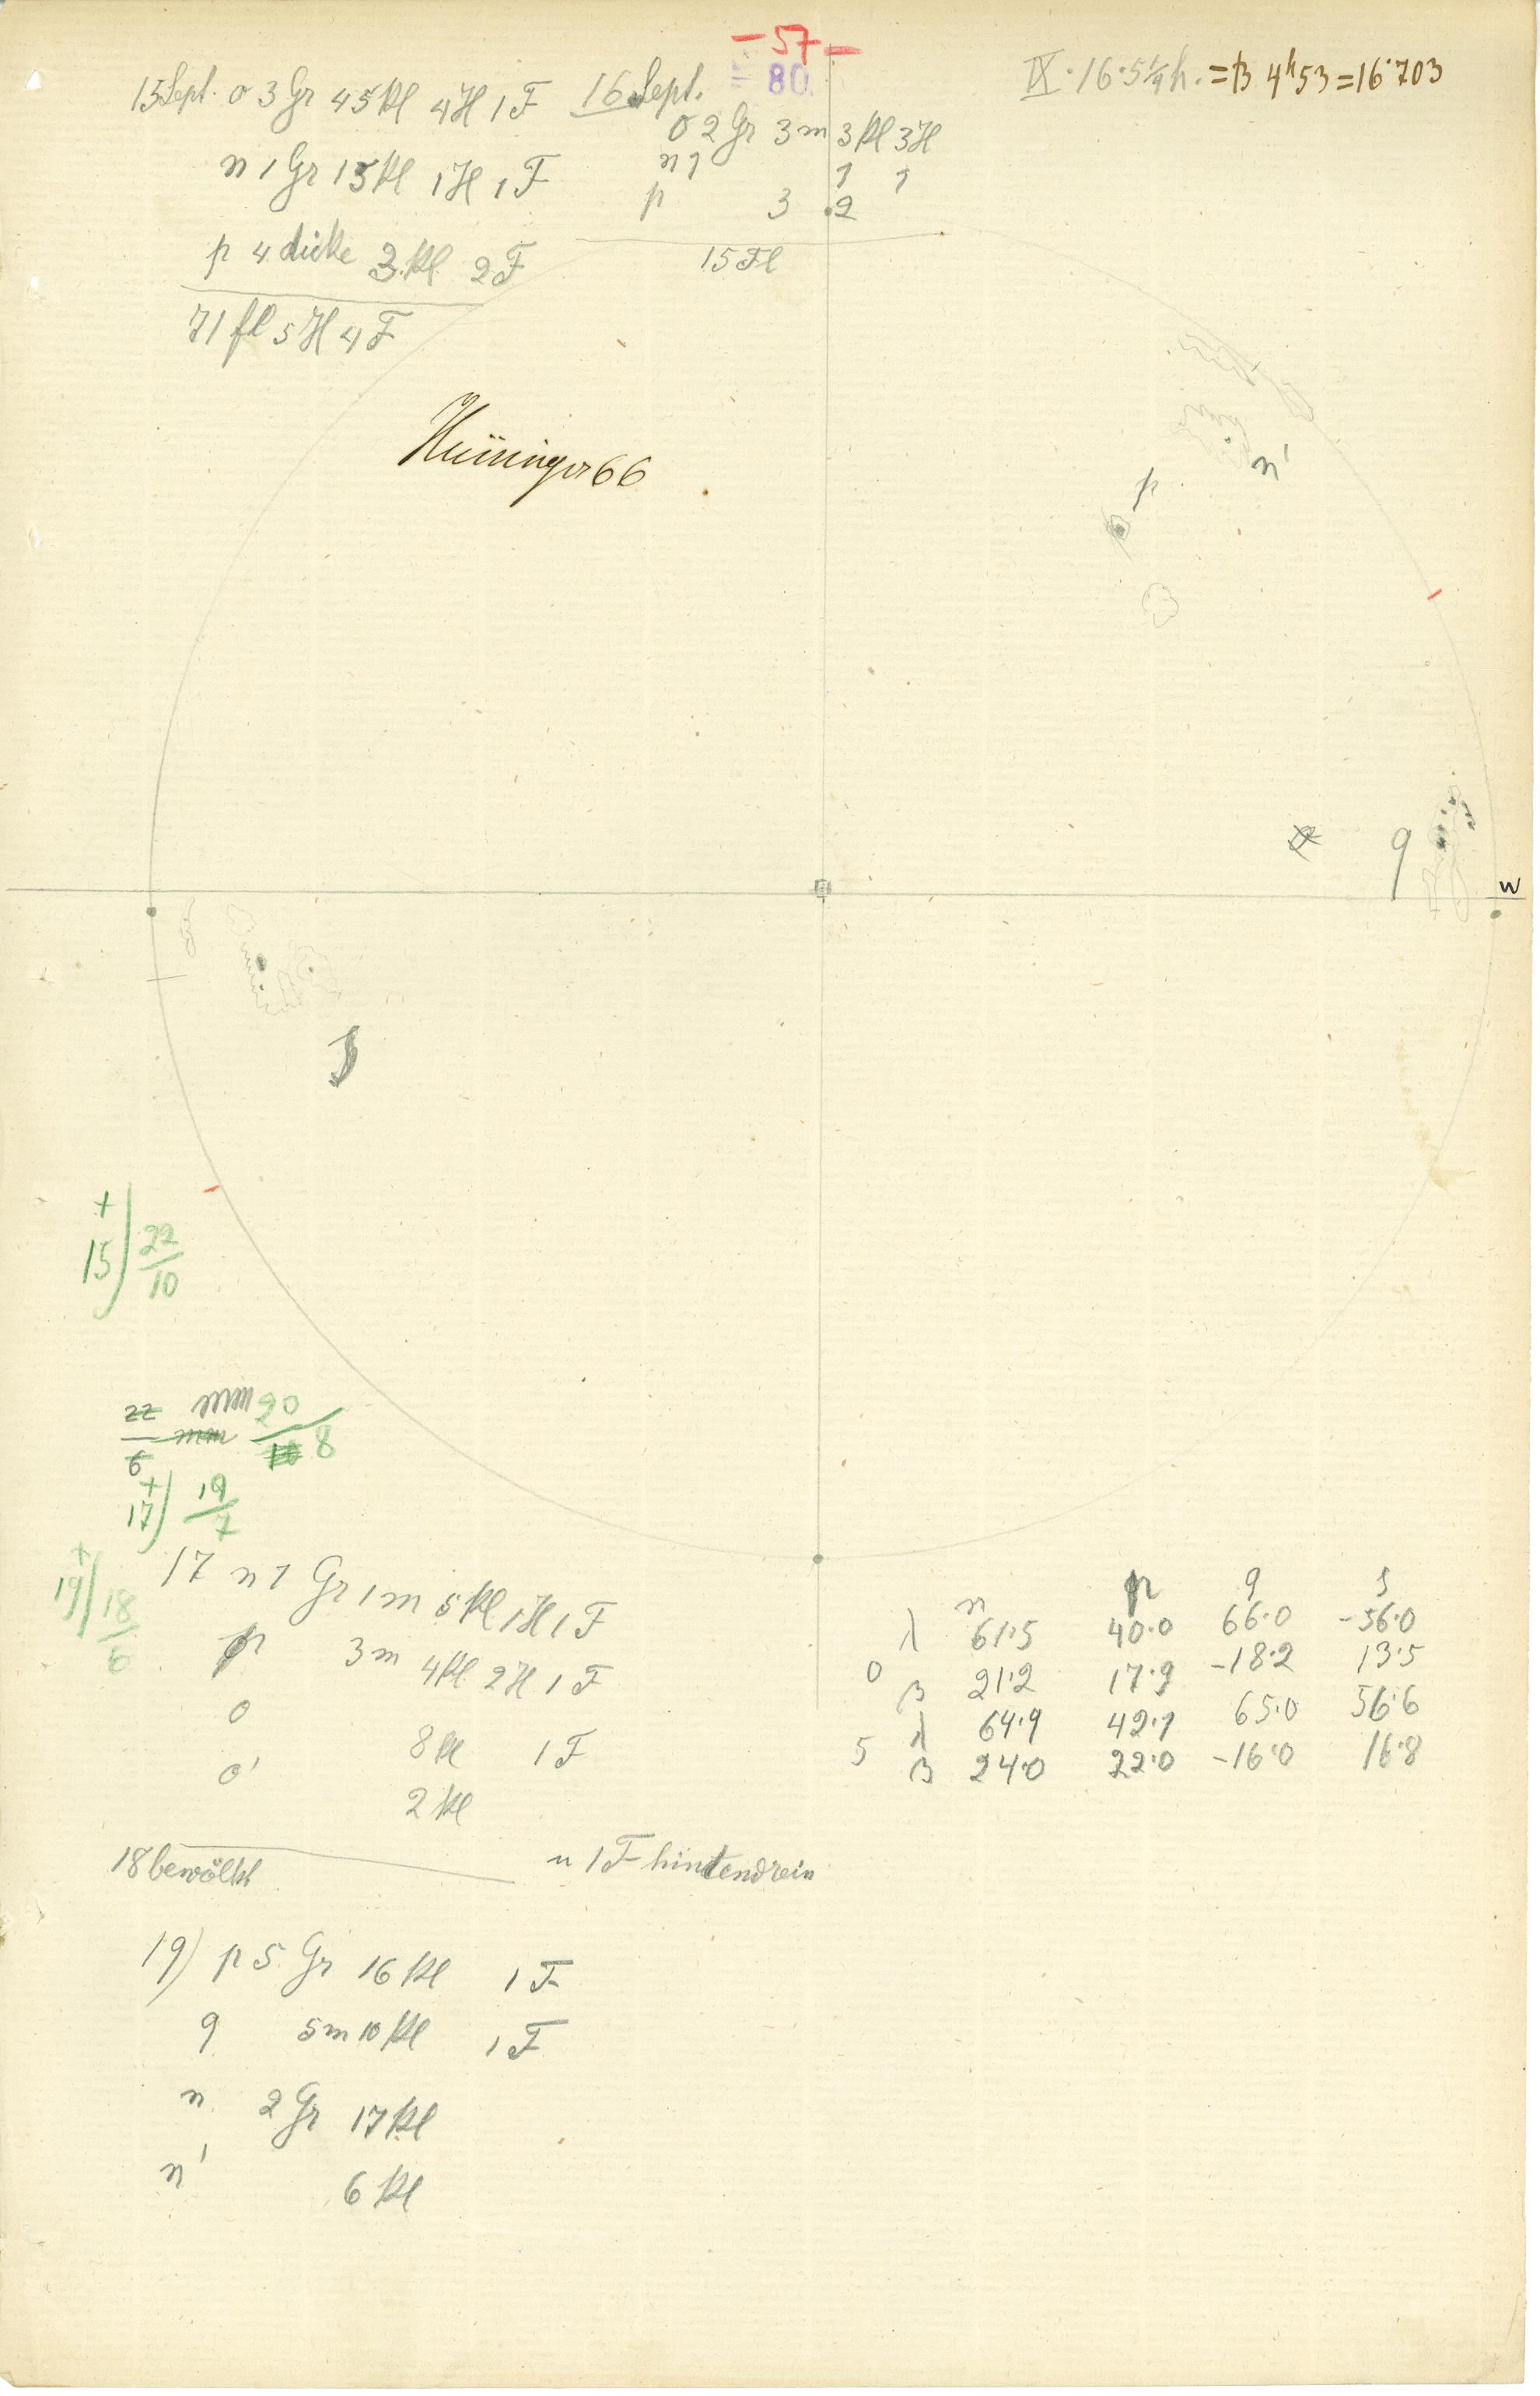 -57-
80.
IX. 16. 5 1/4 h. = 4h53 = 16.703
15 Sept. o 3 Gr 45 Kl 4 H 1 F
n 1 Gr 15 Kl 1 H 1 F
p 4 dicke 3 Kl 2 F
71 fl 5 H 4 F
16 Sept.
o 2 Gr 3 m 3 Kl 3 H
n 1 1 1
p 3 2
15 Fl
66
n'
p
q
W
+
15) 22/10
22/6 mm mm 20/8
+
17) 19/7
+
19) 18/6
17 n 1 Gr 1 m 5 Kl 1 H 1 F
p 3 m 4 Kl 2 H 1 F
o 8 Kl 1 F
o' 2 Kl
18 bewölkt
n 1 F hintendrein
19) p 5 Gr 16 Kl 1 F
q 5 m 10 Kl 1 F
n 2 Gr 17 Kl
n' 6 Kl
n p q s
λ 61.5 40.0 66.0 -56.0
0 β 21.2 17.9 -18.2 13.5
λ 64.9 42.1 65.0 56.6
5 β 24.0 22.0 -16.0 16.8